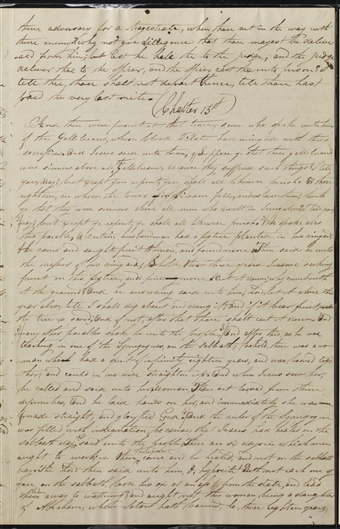 thine adversary for a Magistrate, when thou art in the way with
thine enemy why not give diligence that thou mayest be delive
red from him, lest he hale the to the judge, and the judge
deliver the to the officer, and the officer cast the into prison I
tell the, thou shalt not depart thence, till thou hast
paid the very last mite
(Chapter 13th)
There were present at that time, some who spake unto him
of the Galileans, whose blood Pilate had mingled with their
sacrifices And Jesus said unto them, Suppose ye that these galileans
were sinners above all the Galileans, because they suffered such things I tell
you, Nay, but except you repent you shall all likewise perish Or those
eighteen, on whom the tower in Siloam fell, and slew them, think
ye that they were sinners above all men who dwelt in Jerusalem I tell you
Nay, but except ye repent ye shall all likewise perish He spake also
this parable, A certain husbandman had a fig tree planted in his vineyard
He came and sought fruit thereon, and found none Then said he unto
the dresser of his vineyard, Behold, these three years I came seeking
fruit on this fig tree, and find none Cut it down, why cumbereth
it the ground And he answering said unto him, Lord, let it alone this
year also, till I shall dig about it and dung it And if it bear fruit
the tree is saved, and if not after that thou shalt cut it down And
many other parables spake he unto the people And after this, as he was
teaching in one of the Synagogues, on the Sabbath, behold there was a wo
man which had a spirit of infirmity eighteen years, and was bowed toge
ther, and could in no wise straighten up And when Jesus saw her,
he called and said unto her, Woman Thou art loosed from thine
infirmities, And he laid hands on her, and immediately she was
made straight, and glorified God And the ruler of the Synagogue
was filled with indignation, because that Jesus had healed on the
Sabbath day, said unto the people There are six days in which men
ought to work in them therefore come and be healed, and not on the sabbath
day The Lord then said unto him, O, hypocrite Doth not each one of
you on the sabbath, loose his ox or an ass from the stall, and lead
them away to watering and ought not this woman being a daughter
of Abraham, whom Satan hath bound, lo, these eighteen years,